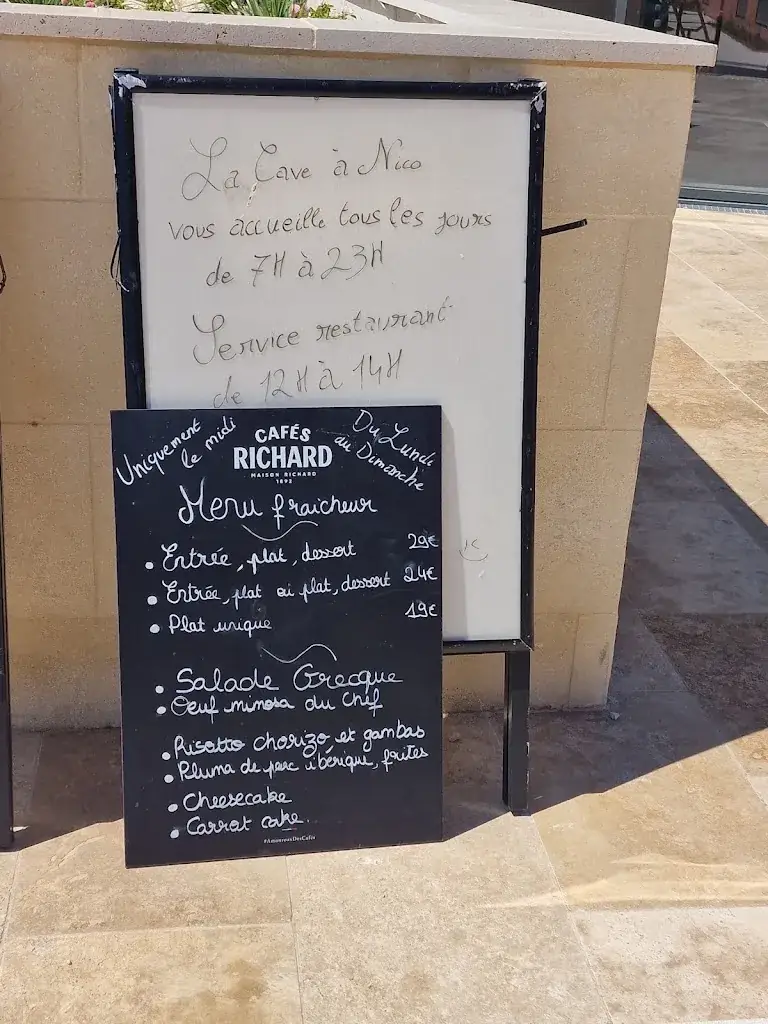 La Cave à Nico
vous accueille tous les jours
de 7H à 23H
Service restaurant
de 12H à 14H
Uniquement
le midi
CAFÉS
RICHARD
MAISON RICHARD
1892
Du Lundi
au Dimanche
Menu fraicheur
• Entrée, plat, dessert 29€
• Entrée, plat ou plat, dessert 24€
• Plat unique 19€
• Salade Grecque
• Oeuf mimosa du Chef
• Risotto chorizo et gambas
• Pluma de porc ibérique, frites
• Cheesecake
• Carrot cake.
#AmoureuxDesCafés